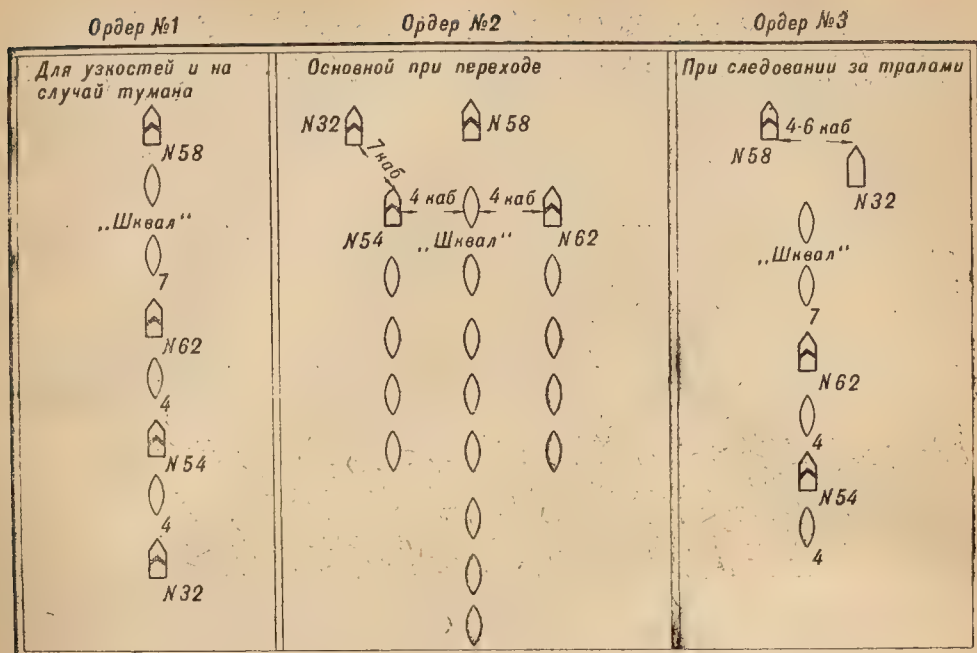 Ордер №1
Для узкостей и на
случай тумана
N58
„Шквал“
7
N62
4
N54
4
N32
Ордер №2
Основной при переходе
N32
N58
7 каб
4 каб
4 каб
N54
„Шквал“
N62
Ордер №3
При следовании за тралами
4-6 каб
N58
N32
„Шквал“
7
N62
4
N54
4